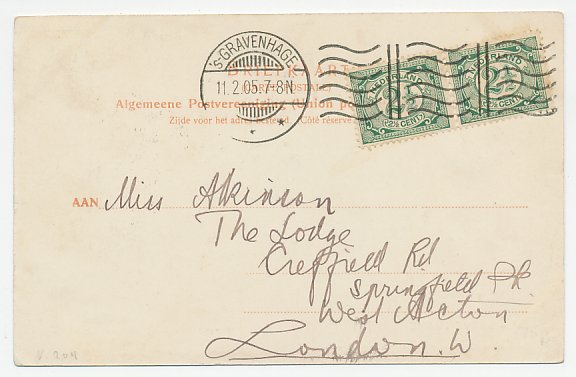 'S-GRAVENHAGE
11.2.05.7-8N
BRIEFKAART
(CARTE POSTALE)
Algemeene Postvereeniging (Union po
Zijde voor het adres bestemd. (Côté réservé
NEDERLAND
2½
(2½ CENT)
NEDERLAND
2½
(2½ CENT)
AAN Miss Atkinson
The Lodge
Creffield Rd
Springfield Pk
West Acton
London. W.
V. 204